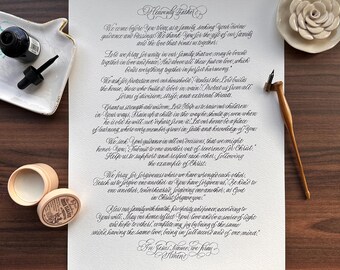 Heavenly Father
We come before You today as a family, seeking Your divine
guidance and blessings. We thank You for the gift of our family
and the love that binds us together.
Lord, we pray for unity in our family that we may be bound
together in love and peace. And above all these put on love, which
binds everything together in perfect harmony."
We ask for protection over our household. "Unless the Lord builds
the house, those who build it labor in vain." Protect us from all
forms of division, strife, and external threats.
Grant us strength and wisdom, Lord. Help us to train our children
in Your ways. "Train up a child in the way he should go; even when
he is old he will not depart from it." Let our home be a place
of where every member grows in faith and knowledge of You.
We seek Your guidance in all our decisions, that we might
honor You. "Submit to one another out of reverence for Christ."
Help us to support and respect each other, following
the example of Christ.
We pray for forgiveness where we have wronged each other.
Teach us to forgive one another as You have forgiven us. "Be kind to
one another, tenderhearted, forgiving one another, as God
in Christ forgave you."
Bless our family with health, prosperity, and peace, according to
Your will. May our home reflect Your love and be a source of light
and hope to others. complete my joy by being of the same
mind, having the same love, being in full accord and of one mind."
In Jesus' Name, we pray
Amen.